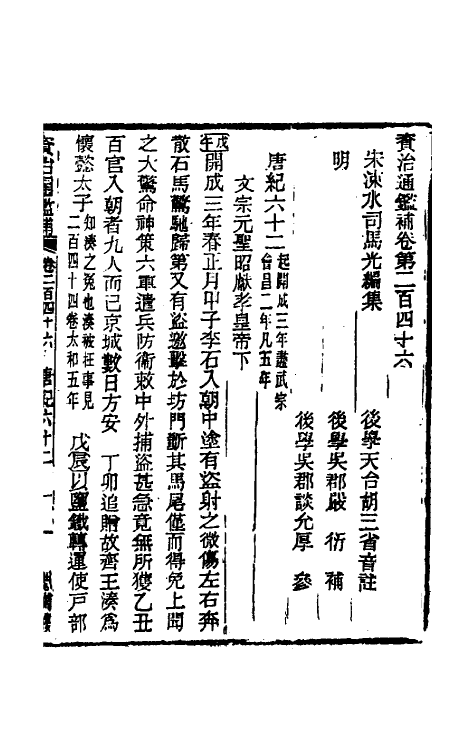 資治通鑑補卷第二百四十六
宋涑水司馬光編集　後學天台胡三省音註
明　後學吳郡嚴　衍　補
後學吳郡談允厚　參
唐紀六十二起開成三年盡武宗會昌二年凡五年
文宗元聖昭獻孝皇帝下
戊午開成三年春正月甲子李石入朝中塗有盜射之微傷左右奔
散石馬驚馳歸第又有盜邀擊於坊門斷其馬尾僅而得免上聞
之大驚命神策六軍遣兵防衛敕中外捕盜甚急竟無所獲乙丑
百官入朝者九人而已京城數日方安　丁卯追贈故齊王湊為
懷懿太子知湊之冤也湊被枉事見二百四十四卷太和五年　戊辰以鹽鐵轉運使戶部
資治通鑑補　卷二百四十六　唐紀六十二　一